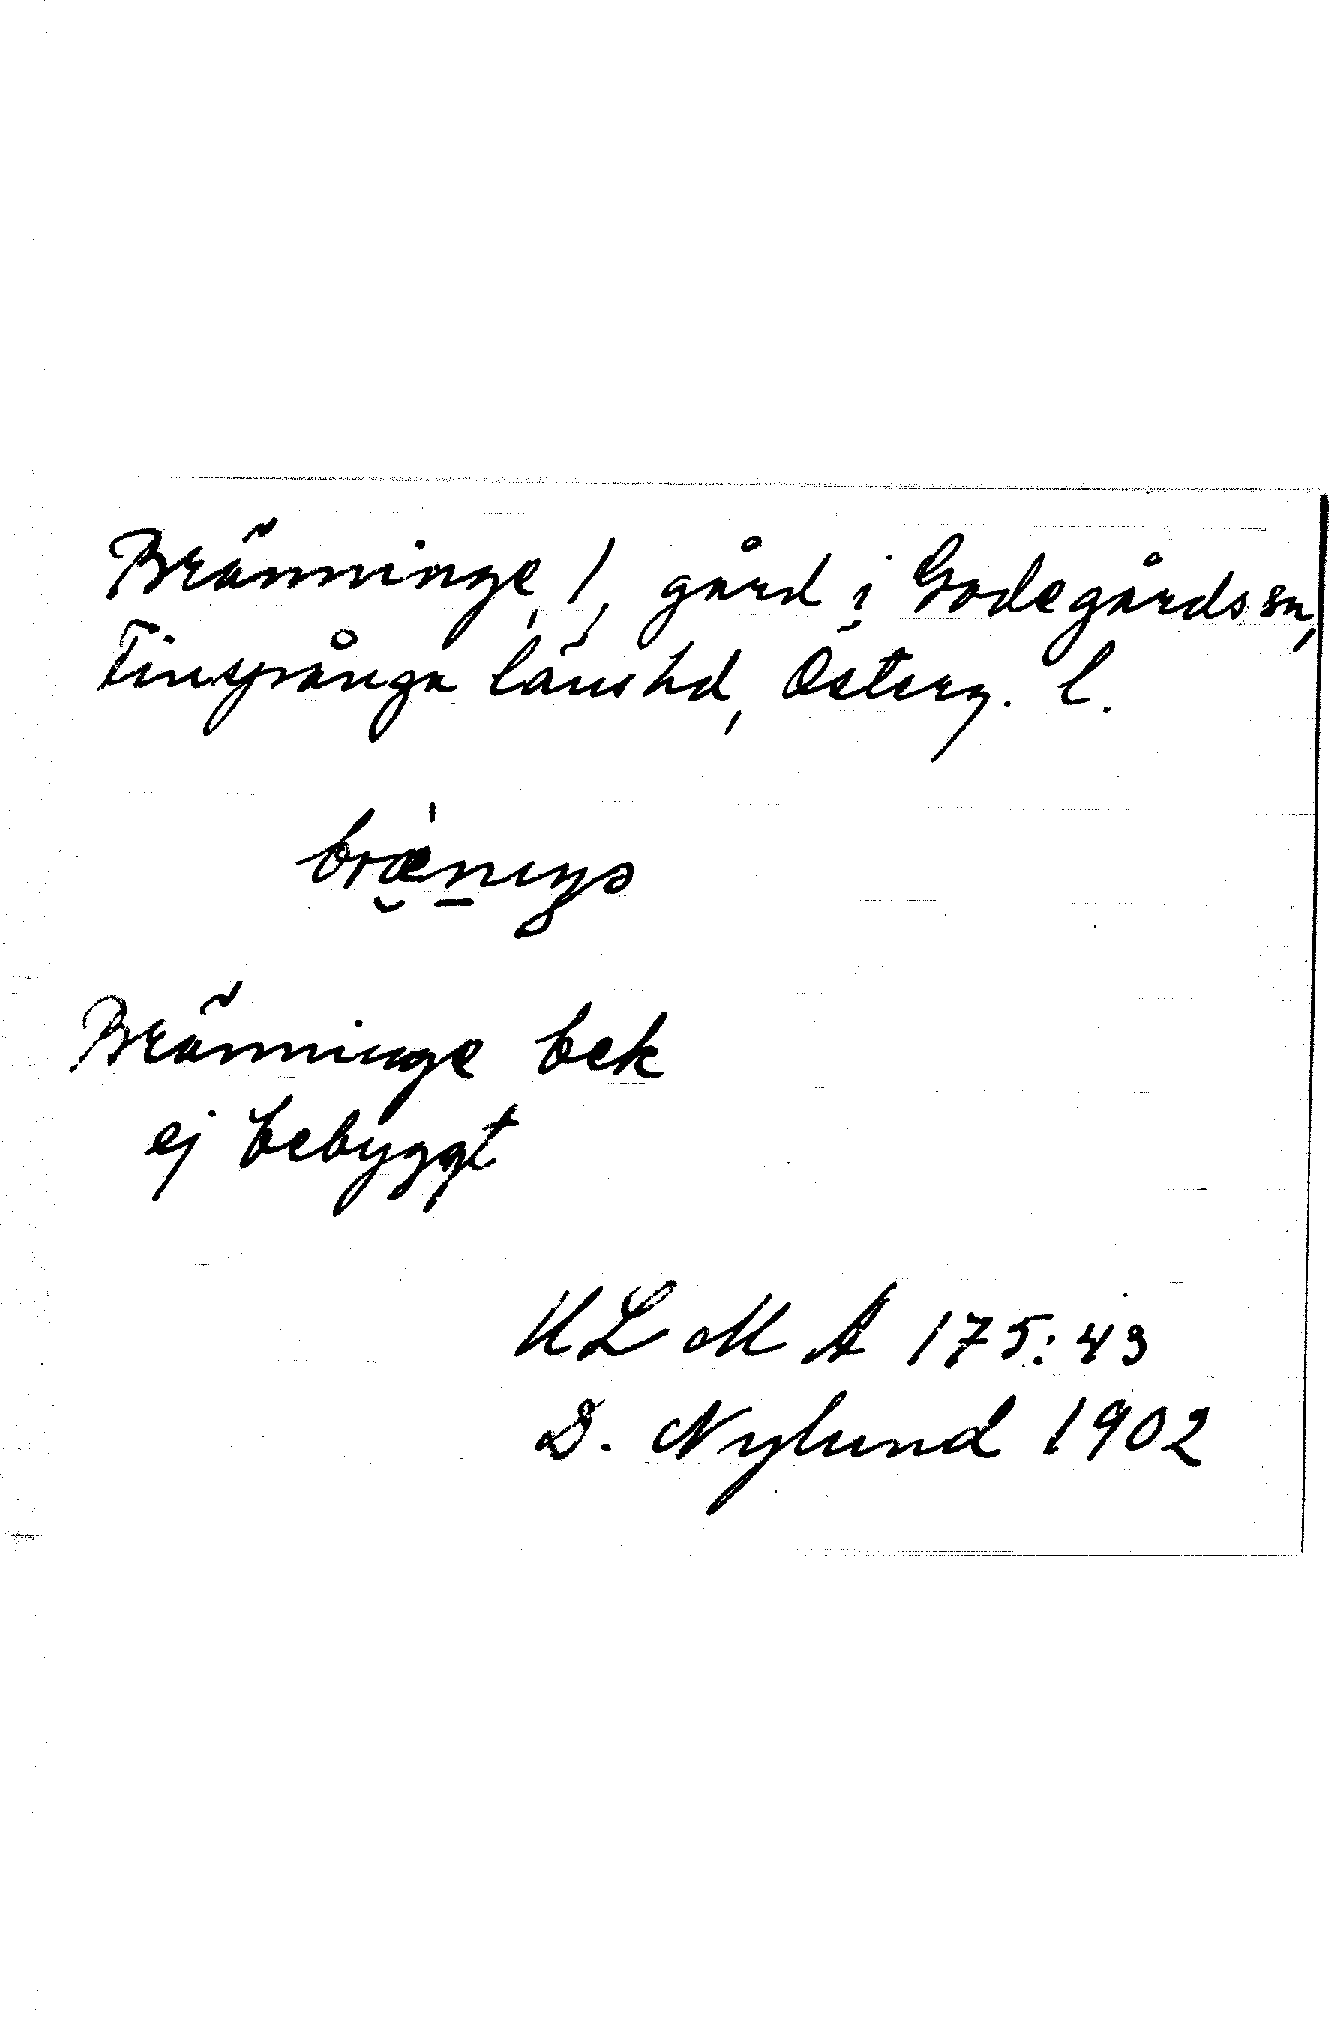 Bränninge, 1, gård i Godegårds sn,
Finspånga läns hd, Österg. l.
Bränninge bek
ej bebyggt
ULMA 175:43
S. Nylund 1902